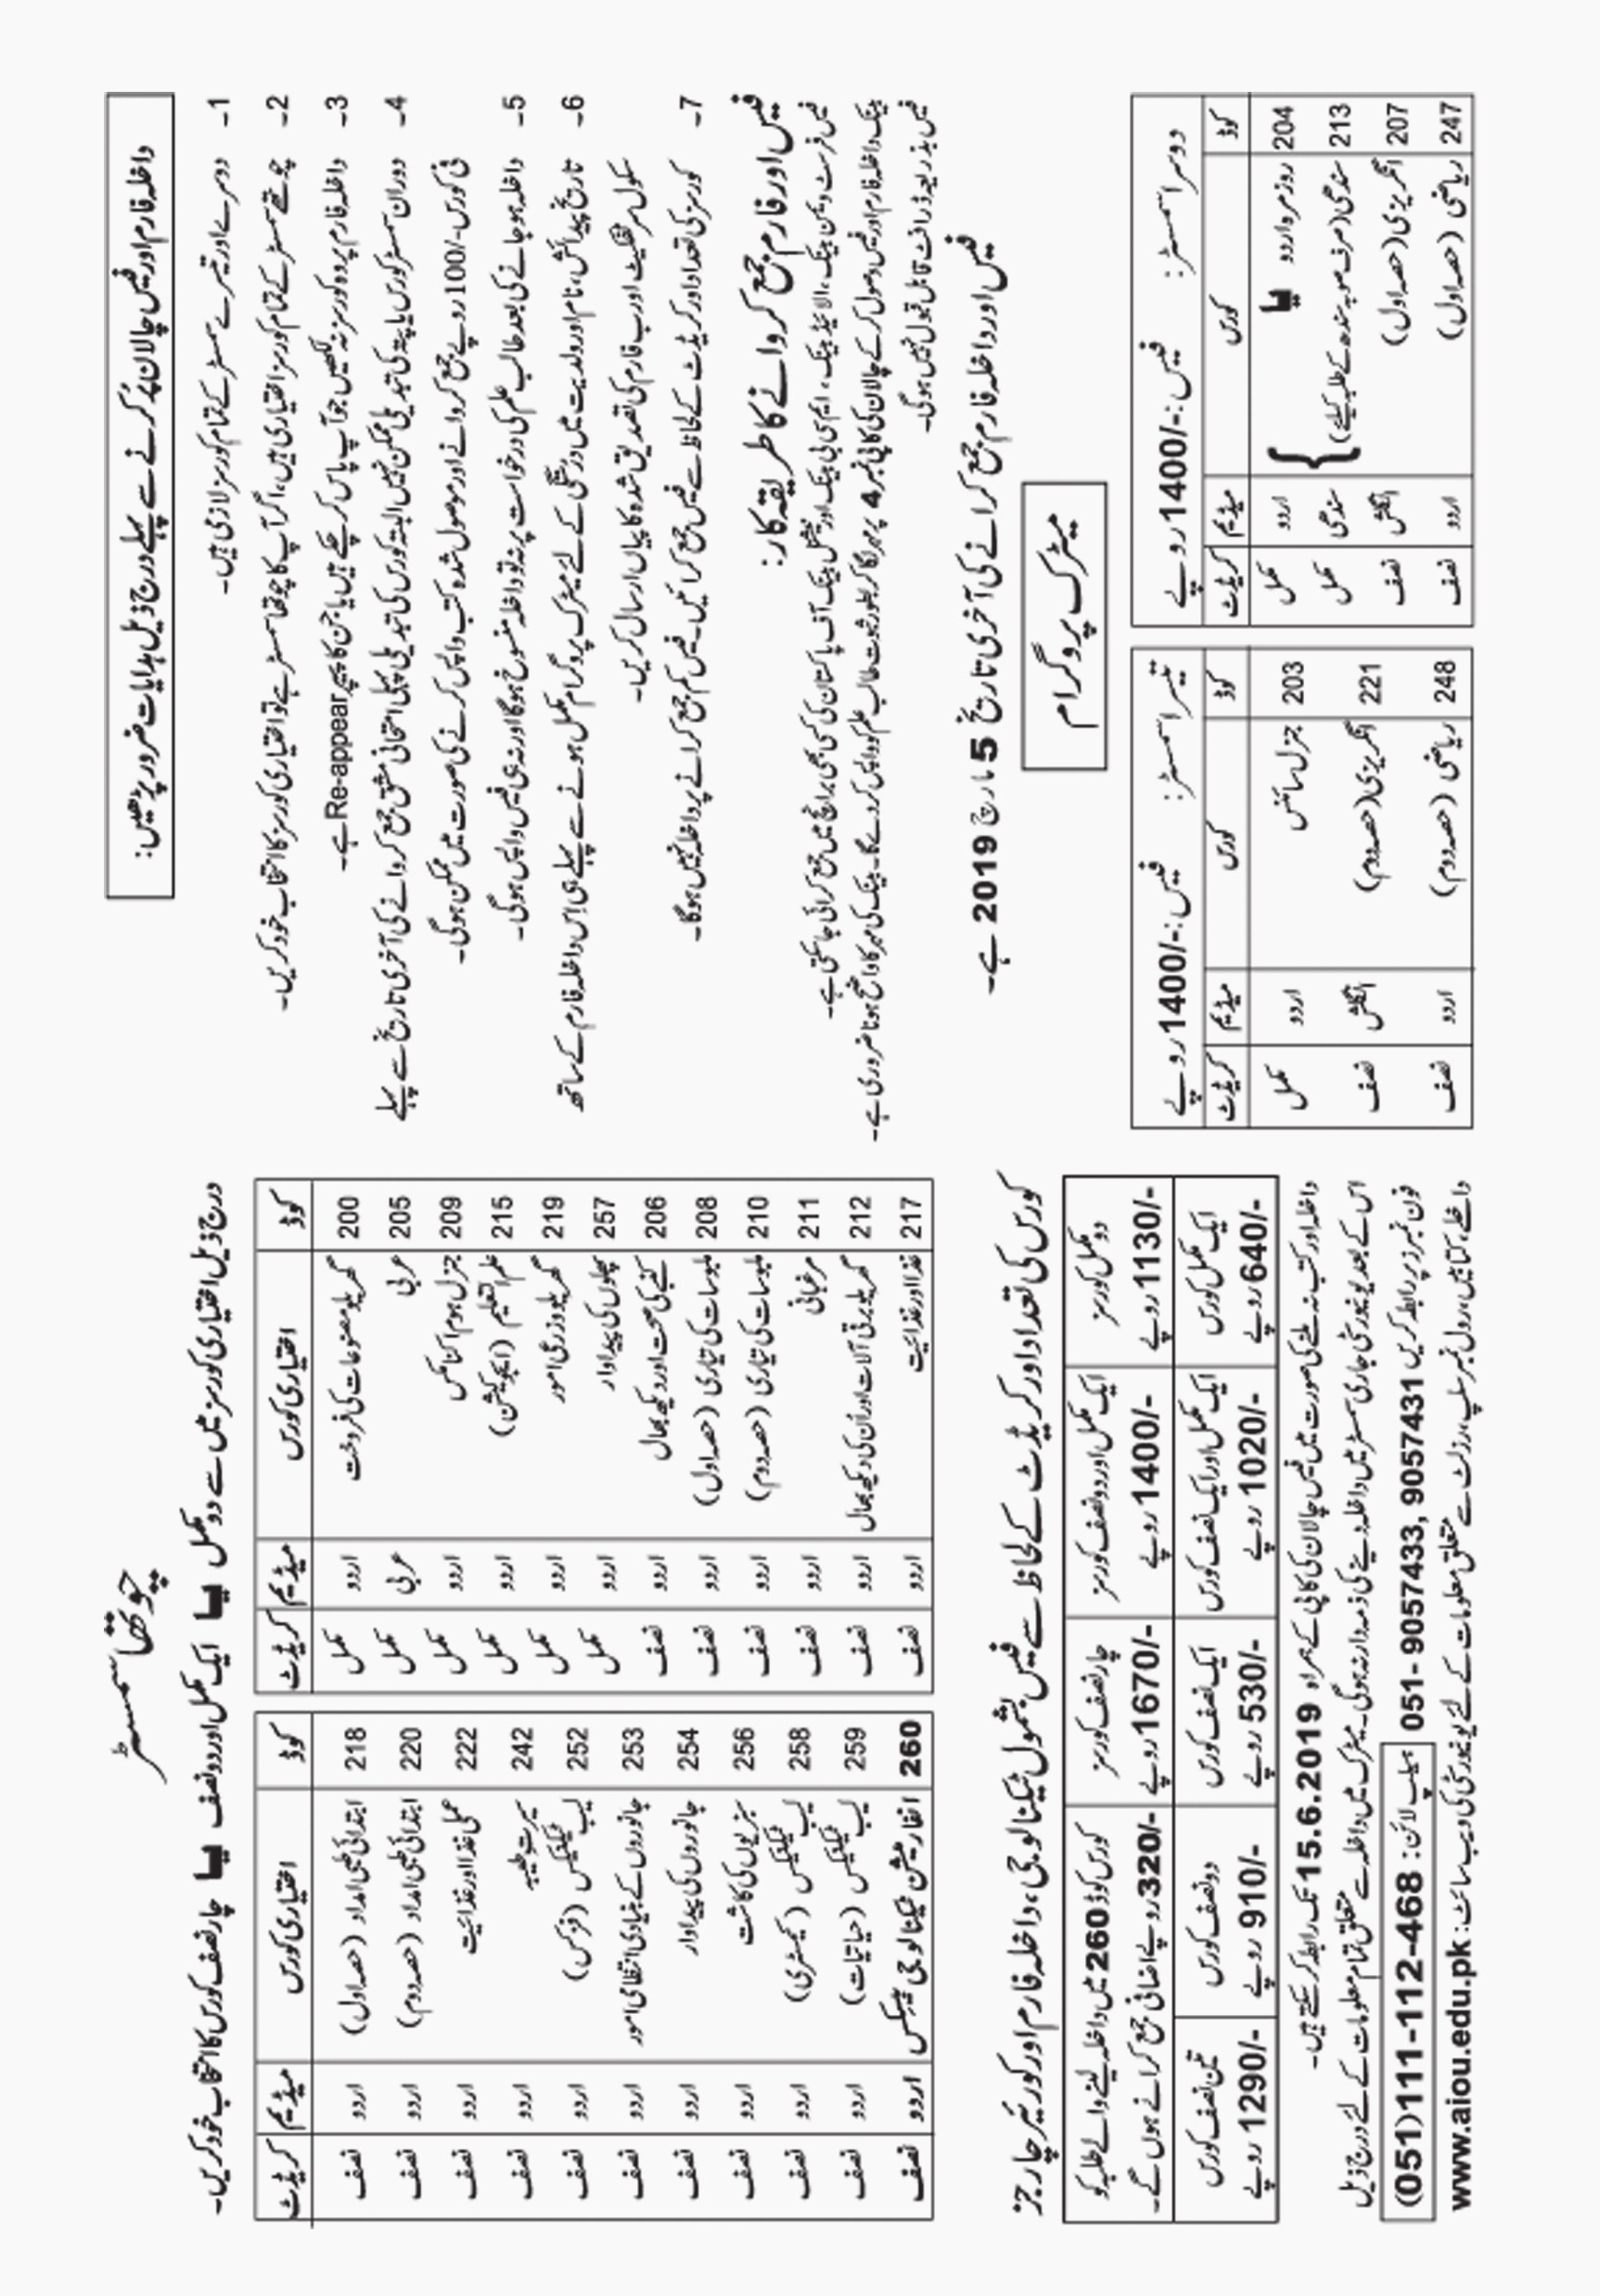 داخلہ فارم اور فیس چالان پُر کرنے سے پہلے درج ذیل ہدایات ضرور پڑھیں:
1- دوسرے اور تیسرے سمسٹر کے تمام کورسز لازمی ہیں۔
2- چوتھے سمسٹر کے تمام کورسز اختیاری ہیں، اگر آپ کا چوتھا سمسٹر ہے تو اختیاری کورسز کا انتخاب خود کریں۔
3- داخلہ فارم پر وہ کورسز نہ لکھیں جو آپ پاس کر چکے ہیں یا جن کا پیپر Re-appear ہے۔
4- دوران سمسٹر کورس یا پتہ کی تبدیلی ممکن نہیں البتہ کورس کی تبدیلی پہلی امتحانی مشق جمع کروانے کی آخری تاریخ سے پہلے
فی کورس -/100 روپے جمع کروانے اور موصول شدہ کتب واپس کرنے کی صورت میں ممکن ہوگی۔
5- داخلہ ہو جانے کی بعد طالب علم کی درخواست پر نہ تو داخلہ منسوخ ہوگا اور نہ ہی فیس واپس ہوگی۔
6- تاریخ پیدائش، نام اور ولدیت میں درستگی کے لئے میٹرک پروگرام مکمل ہونے سے پہلے ہی اس داخلہ فارم کے ساتھ
سکول سرٹیفکیٹ اور ب فارم کی تصدیق شدہ کاپیاں ارسال کریں۔
7- کورسز کی تعداد اور کریڈٹ کے لحاظ سے فیس جمع کرائیں۔ فیس کم جمع کرانے پر داخلہ نہیں ہوگا۔
فیس اور فارم جمع کروانے کا طریقہ کار:
فیس فرسٹ ویمن بینک، الائیڈ بینک، ایم سی بی بینک اور نیشنل بینک آف پاکستان کی کسی بھی برانچ میں جمع کرائی جاسکتی ہے۔
بینک داخلہ فارم اور فیس وصول کر کے چالان کی کاپی نمبر 4 پر مہر لگا کر بطور ثبوت طالب علم کو واپس کردے گا۔ بینک کی مہر کا واضح ہونا ضروری ہے۔
فیس بذریعہ ڈرافٹ قابل قبول نہیں ہوگی۔
فیس اور داخلہ فارم جمع کرانے کی آخری تاریخ 5 مارچ 2019 ہے۔
میٹرک پروگرام
دوسرا سمسٹر: فیس: -/1400 روپے
کوڈ کورس میڈیم کریڈٹ
204 روزمرہ اردو یا اردو مکمل
213 سندھی (صرف صوبہ سندھ کے طلبہ کیلئے) سندھی مکمل
207 انگریزی (حصہ اول) انگلش نصف
247 ریاضی (حصہ اول) اردو نصف
تیسرا سمسٹر: فیس: -/1400 روپے
کوڈ کورس میڈیم کریڈٹ
203 جنرل سائنس اردو مکمل
221 انگریزی (حصہ دوم) انگلش نصف
248 ریاضی (حصہ دوم) اردو نصف
چوتھا سمسٹر
درج ذیل اختیاری کورسز میں سے دو مکمل یا ایک مکمل اور دو نصف یا چار نصف کورس کا انتخاب خود کریں۔
کوڈ اختیاری کورس میڈیم کریڈٹ
200 گھریلو مصنوعات کی فروخت اردو مکمل
205 عربی عربی مکمل
209 جنرل ہوم اکنامکس اردو مکمل
215 علم التعلیم (ایجوکیشن) اردو مکمل
219 گھریلو و زرعی امور اردو مکمل
257 پھلوں کی پیداوار اردو مکمل
206 کنبے کی صحت اور دیکھ بھال اردو نصف
208 ملبوسات کی تیاری (حصہ اول) اردو نصف
210 ملبوسات کی تیاری (حصہ دوم) اردو نصف
211 مرغبانی اردو نصف
212 گھریلو برقی آلات اور اُن کی دیکھ بھال اردو نصف
217 غذا اور غذائیت اردو نصف
کوڈ اختیاری کورس میڈیم کریڈٹ
218 ابتدائی طبی امداد (حصہ اول) اردو نصف
220 ابتدائی طبی امداد (حصہ دوم) اردو نصف
222 عملی غذا اور غذائیت اردو نصف
242 سیرت طیبہ اردو نصف
252 لیب ٹیکنیکس (فزکس) اردو نصف
253 جانوروں کے بنیادی انتظامی امور اردو نصف
254 جانوروں کی پیداوار اردو نصف
256 سبزیوں کی کاشت اردو نصف
258 لیب ٹیکنیکس (کیمسٹری) اردو نصف
259 لیب ٹیکنیکس (حیاتیات) اردو نصف
260 انفارمیشن ٹیکنالوجی بیسکس اردو نصف
کورس کی تعداد اور کریڈٹ کے لحاظ سے فیس بشمول ٹیکنالوجی، داخلہ فارم اور کورئیر چارجز
دو مکمل کورسز ایک مکمل اور دو نصف کورسز چار نصف کورسز کورس کوڈ 260 میں داخلہ لینے والے طلبہ کو
-/1130 روپے -/1400 روپے -/1670 روپے -/320 روپے اضافی جمع کرانے ہوں گے۔
ایک مکمل کورس ایک مکمل اور ایک نصف کورس ایک نصف کورس دو نصف کورس تین نصف کورس
-/640 روپے -/1020 روپے -/530 روپے -/910 روپے -/1290 روپے
داخلہ اور کتب نہ ملنے کی صورت میں فیس چالان کی کاپی کے ہمراہ 15.6.2019 تک رابطہ کرسکتے ہیں۔
اس کے بعد یونیورسٹی جاری سمسٹر میں داخلہ دینے کی ذمہ دار نہ ہوگی۔ میٹرک میں داخلہ سے متعلق تمام معلومات کے لئے درج ذیل
فون نمبرز پر رابطہ کریں 051- 9057433, 9057431 ہیلپ لائن: (051)111-112-468
داخلے، کتابیں، رول نمبر سلپ، رزلٹ سے متعلق معلومات کے لئے یونیورسٹی کی ویب سائٹ: www.aiou.edu.pk